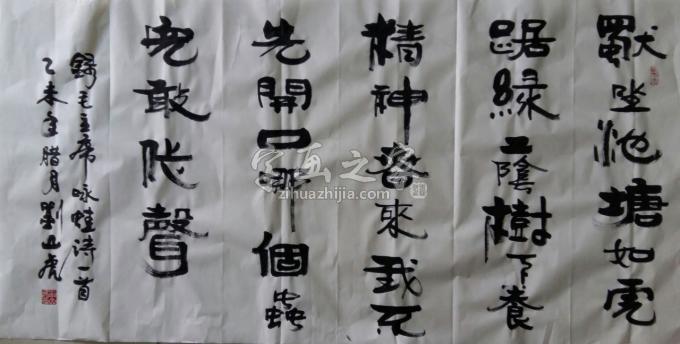 獨坐池塘如虎
踞綠蔭樹下養
精神春來我不
先開口哪個蟲
兒敢作聲
錄毛主席咏蛙诗一首
乙未年腊月劉虎
字画之家
zihuazhijia.com